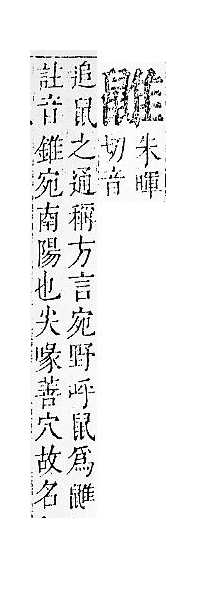 䶆
朱暉
切音
追鼠之通稱方言宛野呼鼠為䶆
註音錐宛南陽也尖喙善穴故名